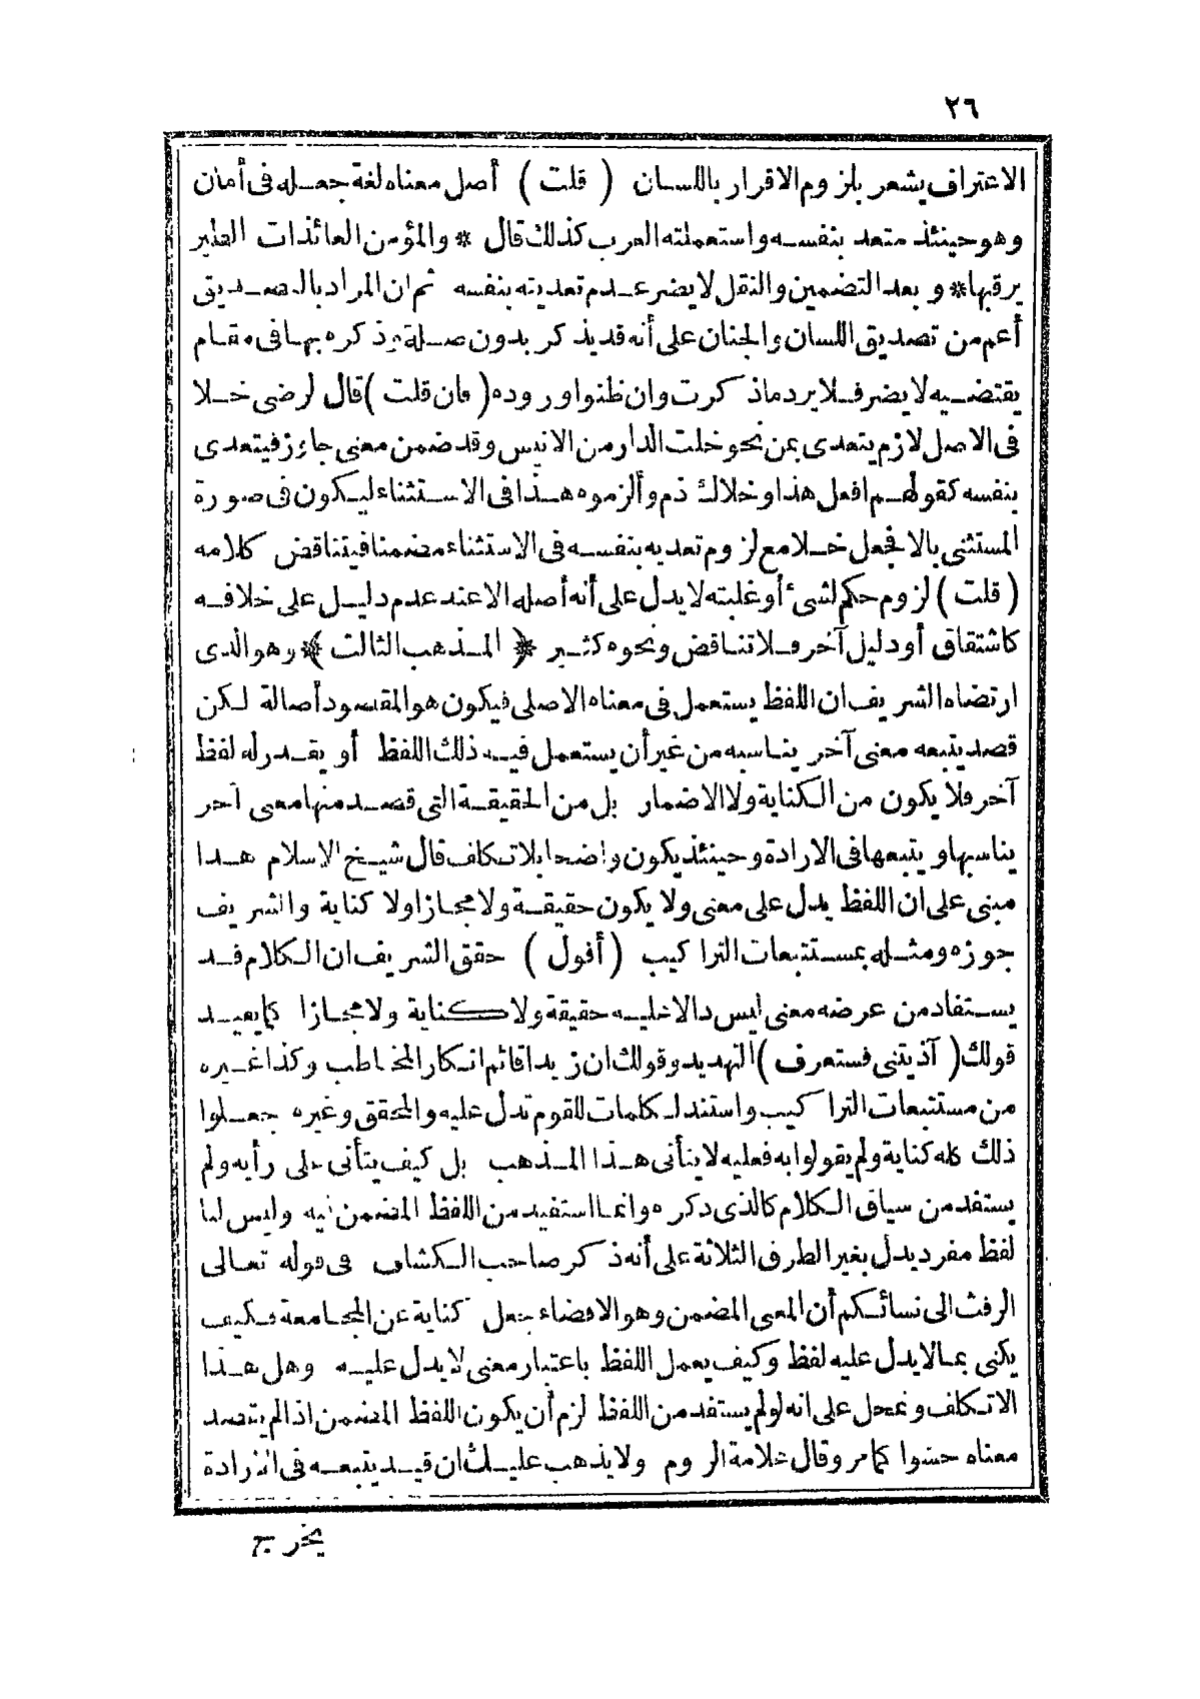 ٢٦
الاعتراف يشعر بلزوم الاقرار باللسان ( قلت ) أصل معناه لغة جعله فى أمان
وهو حينئذ متعد بنفسه واستعملته العرب كذلك قال * والمؤمن العائذات الطير
يرقبها * و بعد التضمين والنقل لا يضر عدم تعديته بنفسه ثم ان المراد بالتصديق
أعم من تصديق اللسان والجنان على أنه قد يذكر بدون صلة وذكره بها فى مقام
يقتضيه لا يضر فلا يرد ما ذكرت وان ظنوا وروده ( فان قلت ) قال الرضى خلا
فى الاصل لازم يتعدى بمن نحو خلت الدار من الانيس وقد ضمن معنى جاوز فيتعدى
بنفسه كقولهم افعل هذا وخلاك ذم وألزموه هذا فى الاستثناء ليكون فى صورة
المستثنى بالا فجعل خلا مع لزوم تعديه بنفسه فى الاستثناء مضمنا فيتناقض كلامه
( قلت ) لزوم حكم لشئ أو غلبته لا يدل على أنه أصله الا عند عدم دليل على خلافه
كاشتقاق أو دليل آخر فلا تناقض ونحوه كثير ﴿ المذهب الثالث ﴾ وهو الذى
ارتضاه الشريف ان اللفظ يستعمل فى معناه الاصلى فيكون هو المقصود أصالة لكن
قصد يتبعه معنى آخر يناسبه من غير أن يستعمل فيه ذلك اللفظ أو يقدر له لفظ
آخر فلا يكون من الكناية ولا الاضمار بل من الحقيقة التى قصد منها معنى آخر
يناسبها و يتبعها فى الارادة وحينئذ يكون واضحا بلا تكلف قال شيخ الاسلام هذا
مبنى على ان اللفظ يدل على معنى ولا يكون حقيقة ولا مجازا ولا كناية والشريف
جوزه ومثله بمستتبعات التراكيب ( أقول ) حقق الشريف ان الكلام قد
يستفاد من عرضه معنى ليس دالا عليه حقيقة ولا كناية ولا مجازا كما يفيد
قولك ( آذيتنى فستعرف ) التهديد وقولك ان زيدا قائم انكار المخاطب وكذا غيره
من مستتبعات التراكيب واستند لكلمات للقوم تدل عليه والمحقق وغيره جعلوا
ذلك كله كناية ولم يقولوا به فعليه لا يتأتى هذا المذهب بل كيف يتأتى على رأيه ولم
يستفد من سياق الكلام كالذى ذكره وانما استفيد من اللفظ المضمن فيه وليس لنا
لفظ مفرد يدل بغير الطرق الثلاثة على أنه ذكر صاحب الكشاف فى قوله تعالى
الرفث الى نسائكم أن المعنى المضمن وهو الافضاء جعل كناية عن المجامعة فكيف
يكنى بما لا يدل عليه لفظ وكيف يعمل اللفظ باعتبار معنى لا يدل عليه وهل هذا
الا تكلف وتمحل على انه لو لم يستفد من اللفظ لزم أن يكون اللفظ المضمن اذا لم يقصد
معناه حشوا كما مر وقال علامة الروم ولا يذهب عليك ان قيد يتبعه فى الارادة
يخرج